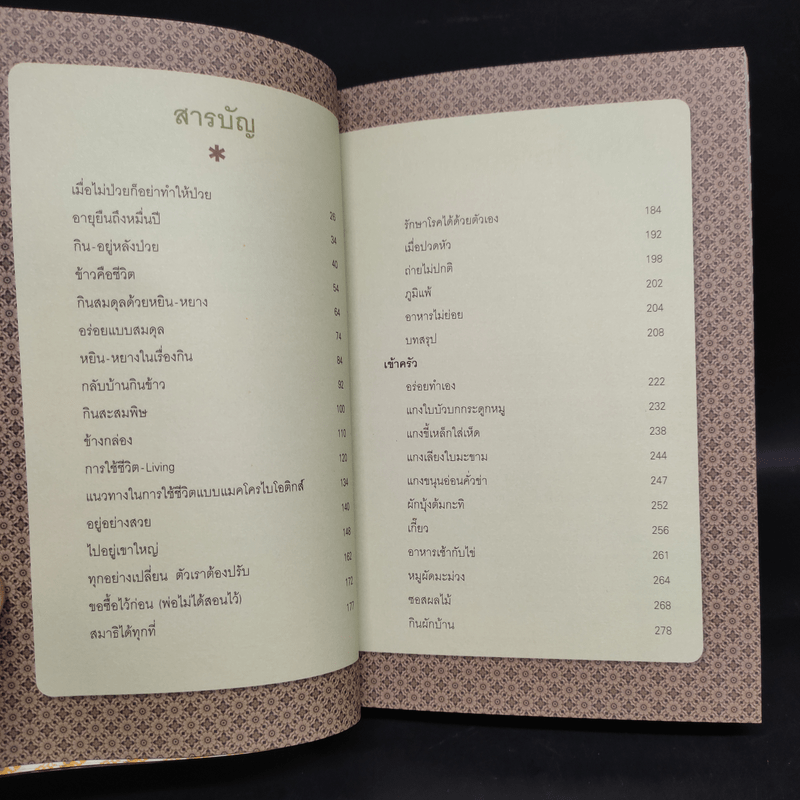 สารบัญ
*
เมื่อไม่ป่วยก็อย่าทำให้ป่วย 26
อายุยืนถึงหมื่นปี 34
กิน-อยู่หลังป่วย 40
ข้าวคือชีวิต 54
กินสมดุลด้วยหยิน-หยาง 64
อร่อยแบบสมดุล 74
หยิน-หยางในเรื่องกิน 84
กลับบ้านกินข้าว 92
กินสะสมพิษ 100
ข้างกล่อง 110
การใช้ชีวิต-Living 120
แนวทางในการใช้ชีวิตแบบแมคโครไบโอติกส์ 134
อยู่อย่างสวย 140
ไปอยู่เขาใหญ่ 148
ทุกอย่างเปลี่ยน ตัวเราต้องปรับ 162
ขอซื้อไว้ก่อน (พ่อไม่ได้สอนไว้) 172
สมาธิได้ทุกที่ 177
รักษาโรคได้ด้วยตัวเอง 184
เมื่อปวดหัว 192
ถ่ายไม่ปกติ 198
ภูมิแพ้ 202
อาหารไม่ย่อย 204
บทสรุป 208
เข้าครัว
อร่อยทำเอง 222
แกงใบบัวบกกระดูกหมู 232
แกงขี้เหล็กใส่เห็ด 238
แกงเลียงใบมะขาม 244
แกงขนุนอ่อนคั่วข่า 247
ผักบุ้งต้มกะทิ 252
เกี๊ยว 256
อาหารเช้ากับไข่ 261
หมูผัดมะม่วง 264
ซอสผลไม้ 268
กินผักบ้าน 278